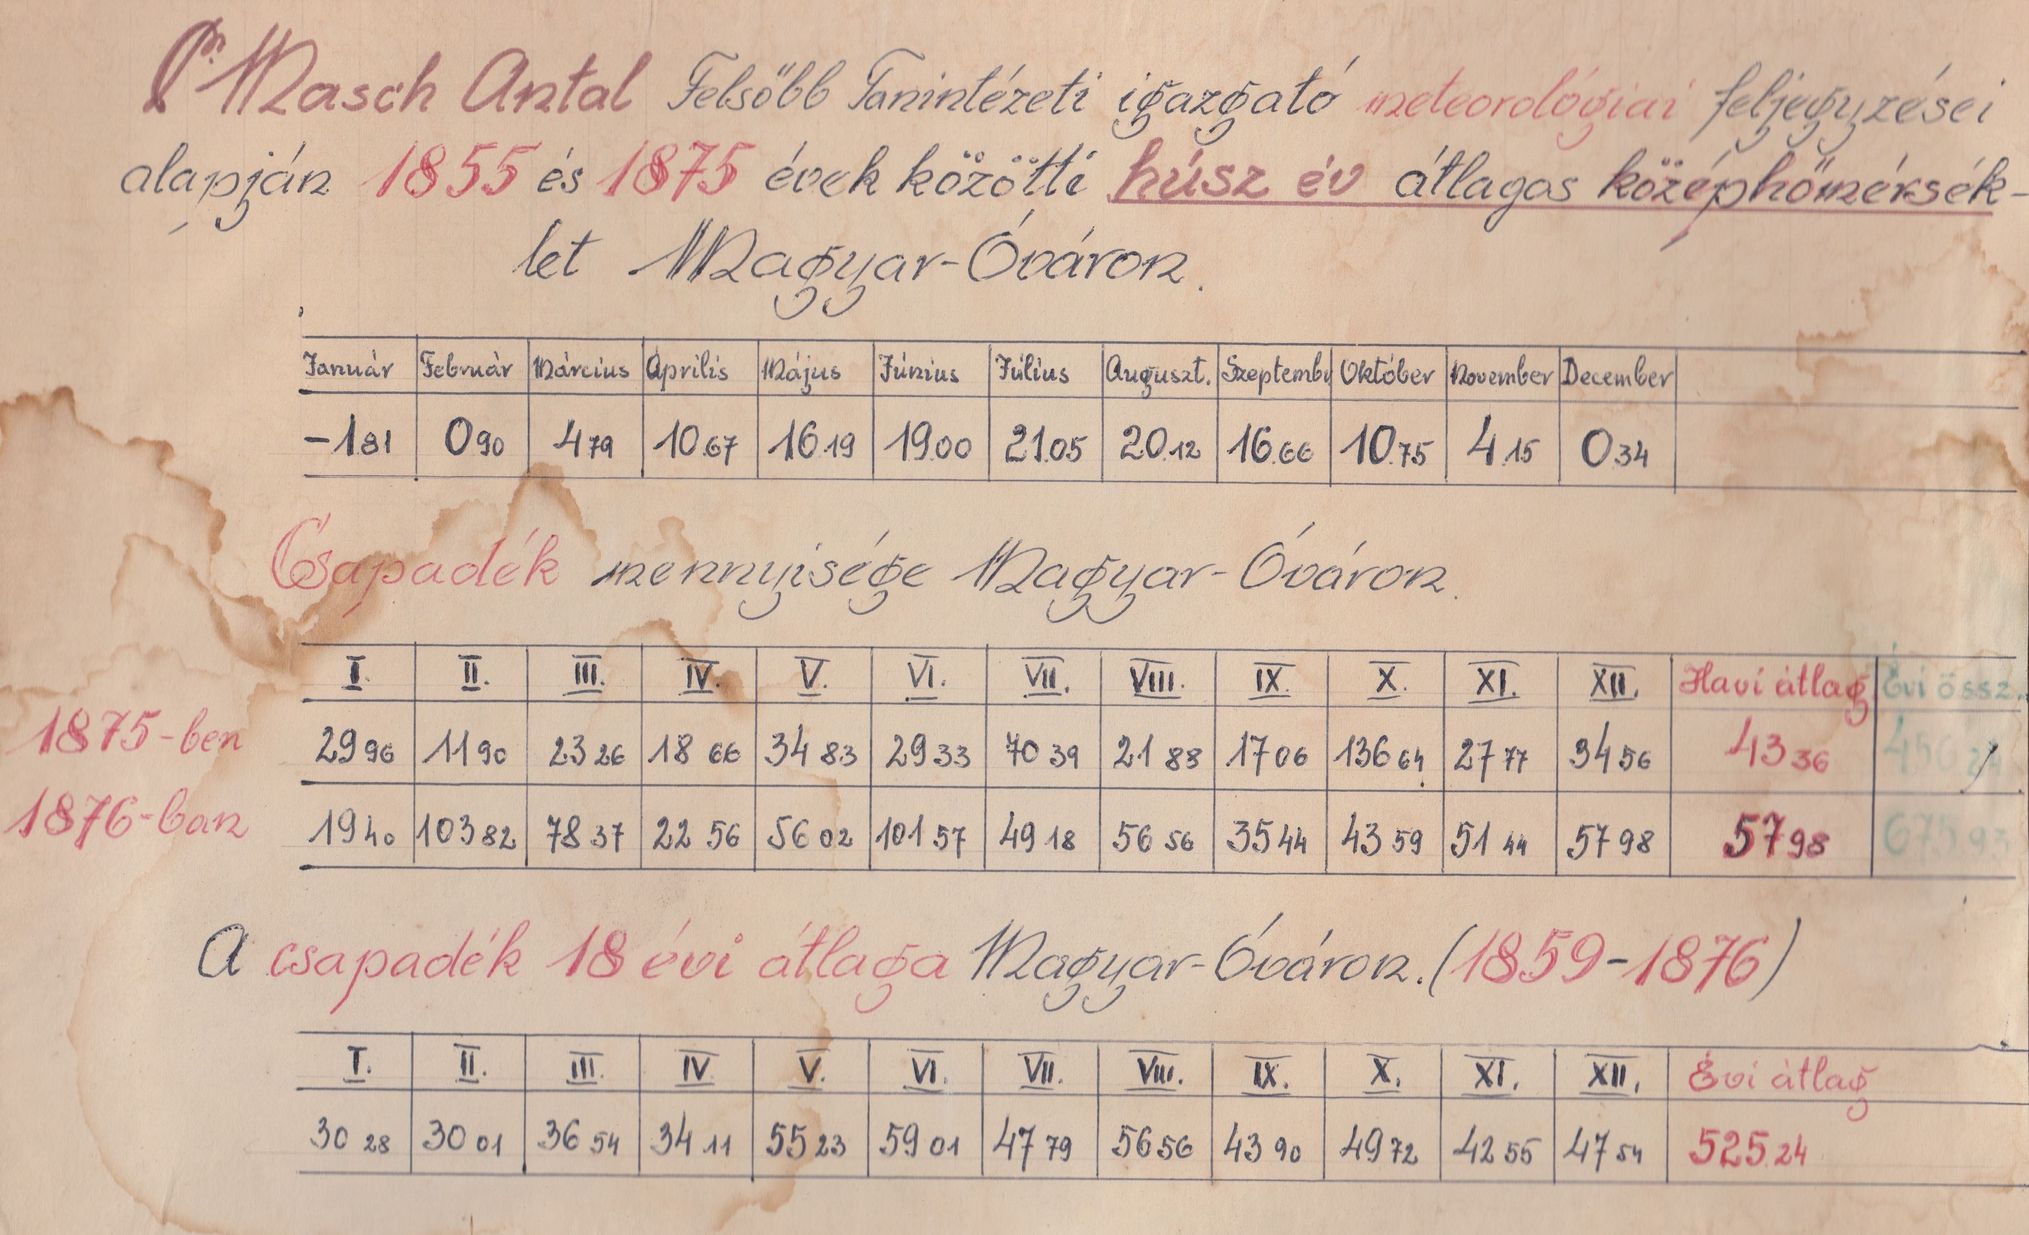 Dr. Masch Antal Felsőbb Tanintézeti igazgató meteorológiai feljegyzései
alapján 1855 és 1875 évek közötti húsz év átlagos középhőmérsék-
let Magyar-Óváron.
Január Február Március Április Május Június Július Auguszt. Szeptemb Október November December
-1.81 0.90 4.79 10.67 16.19 19.00 21.05 20.12 16.66 10.75 4.15 0.34
Csapadék mennyisége Magyar-Óváron.
I. II. III. IV. V. VI. VII. VIII. IX. X. XI. XII. Havi átlag Évi össz.
1875-ben 29 96 11 90 23 26 18 66 34 83 29 33 70 39 21 88 17 06 136 64 27 77 34 56 43 36 456 24
1876-ban 19 40 103 82 78 37 22 56 56 02 101 57 49 18 56 56 35 44 43 59 51 44 57 98 57 98 675 93
A csapadék 18 évi átlaga Magyar-Óváron. (1859-1876)
I. II. III. IV. V. VI. VII. VIII. IX. X. XI. XII. Évi átlag
30 28 30 01 36 54 34 11 55 23 59 01 47 79 56 56 43 90 49 72 42 55 47 54 525.24